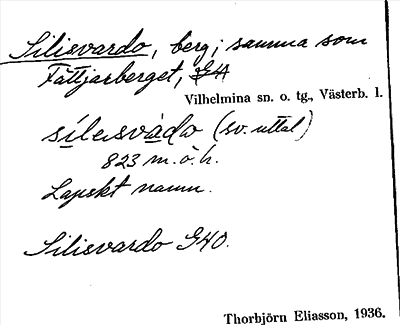 Silisvardo, berg; samma som
Fättjarberget, G4
Vilhelmina sn. o. tg., Västerb. l.
sílesvàdo (sv. uttal)
823 m. ö. h.
Lapskt namn.
Silisvardo G40.
Thorbjörn Eliasson, 1936.